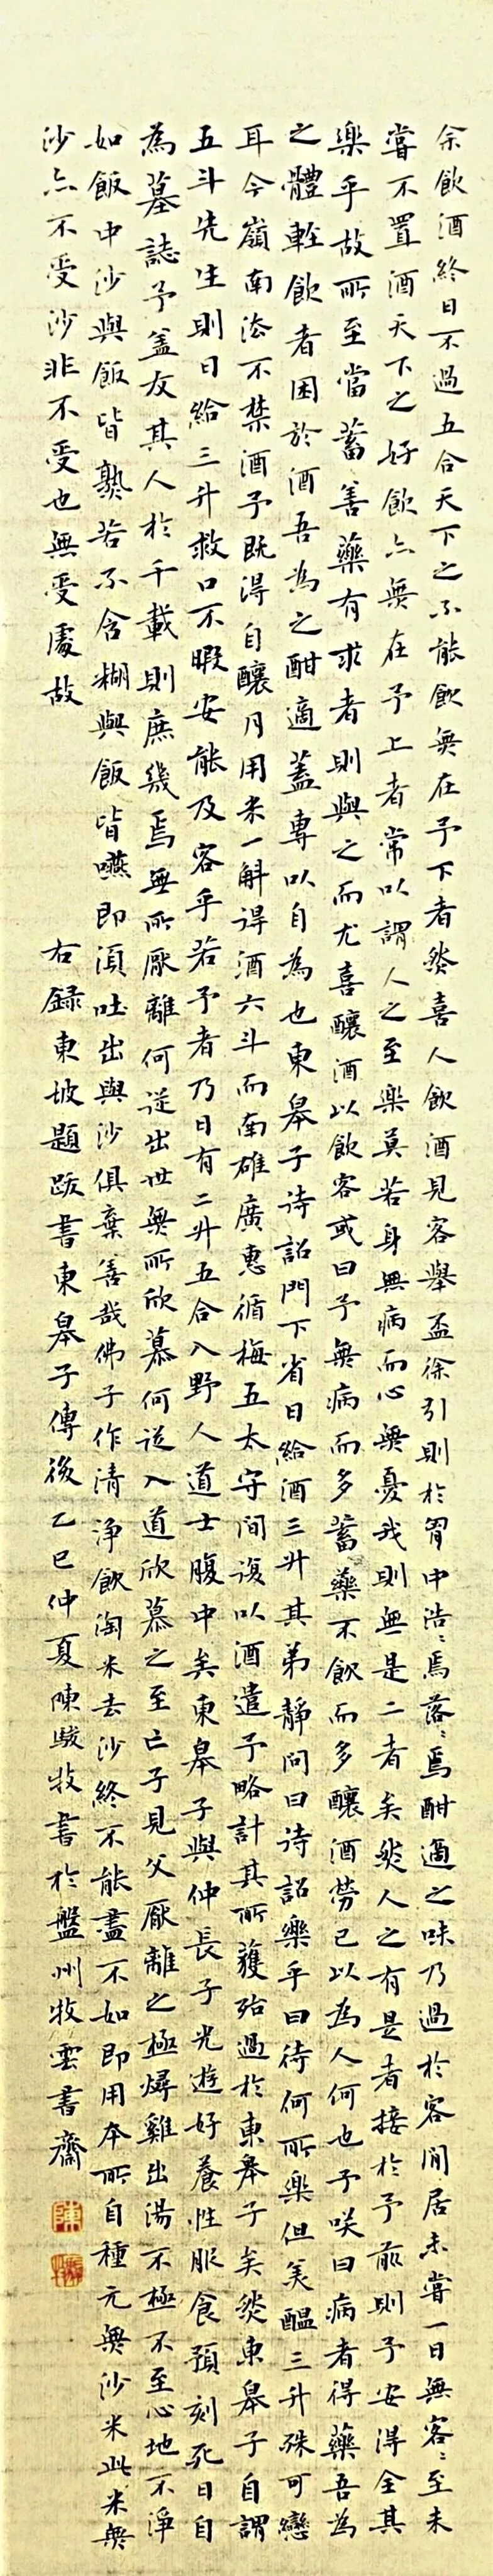 余飲酒終日不過五合天下之不能飲無在予下者然喜人飲酒見客舉盃徐引則於胷中浩〻焉落〻焉酣適之味乃過於客閒居未嘗一日無客〻至未
嘗不置酒天下之好飲亦無在予上者常以謂人之至樂莫若身無病而心無憂我則無是二者矣然人之有是者接於予前則予安得全其
樂乎故所至當蓄善藥有求者則與之而尤喜釀酒以飲客或曰予無病而多蓄藥不飲而多釀酒勞己以為人何也予咲曰病者得藥吾為
之體輕飲者困於酒吾為之酣適蓋專以自為也東皋子待詔門下省日給酒三升其弟靜問曰待詔樂乎曰待何所樂但美醞三升殊可戀
耳今嶺南法不禁酒予既得自釀月用米一斛得酒六斗而南雄廣惠循梅五太守間復以酒遺予略計其所獲殆過於東皋子矣然東皋子自謂
五斗先生則日給三升救口不暇安能及客乎若予者乃日有二升五合入野人道士腹中矣東皋子與仲長子光遊好養性服食預刻死日自
為墓誌予盖友其人於千載則庶幾焉無所厭離何從出世無所欣慕何從入道欣慕之至亡子見父厭離之極燖雞出湯不極不至心地不淨
如飯中沙與飯皆熟若不含糊與飯皆嚥即須吐出與沙俱棄善哉佛子作清淨飲淘米去沙終不能盡不如即用本所自種元無沙米此米無
沙亦不受沙非不受也無受處故 右録東坡題跋書東皋子傳後乙巳仲夏陳駿牧書於盤州牧雲書齋
陳